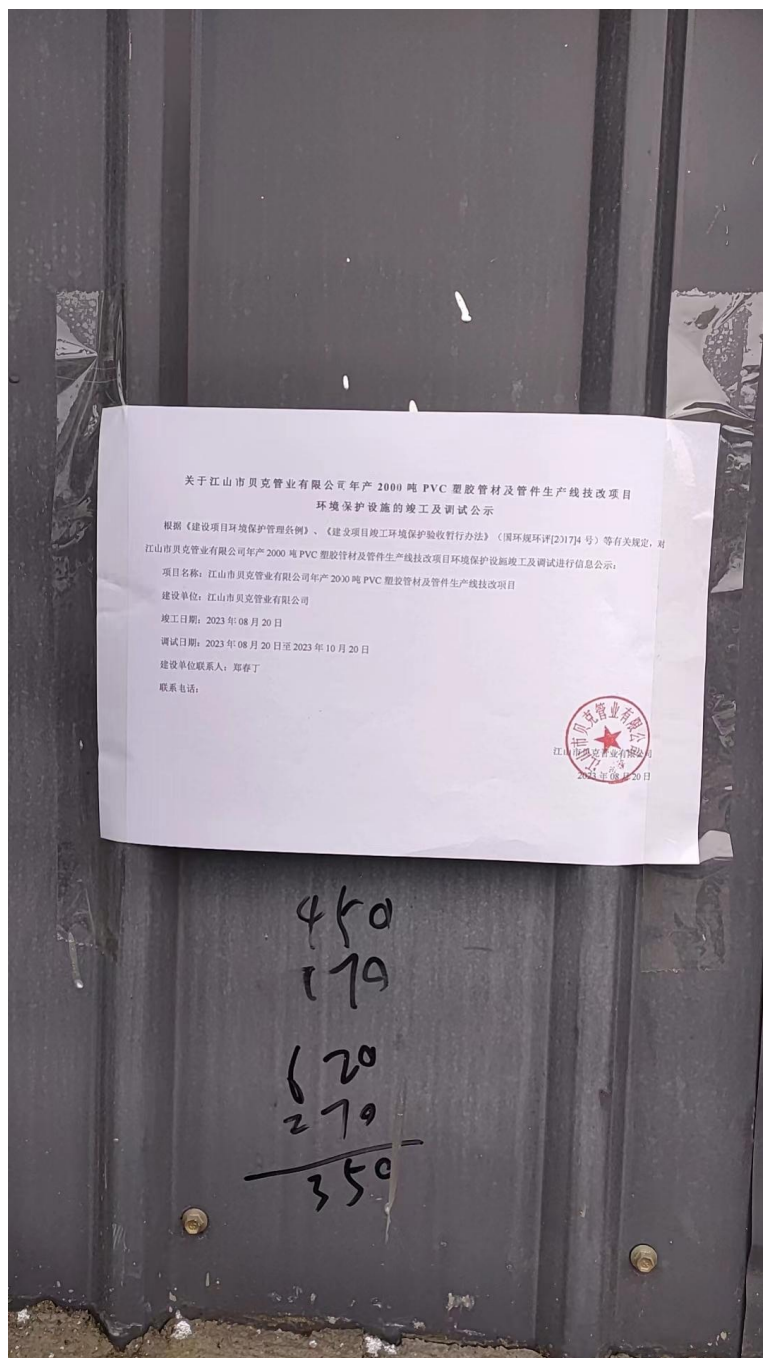 关于江山市贝克管业有限公司年产 2000 吨 PVC 塑胶管材及管件生产线技改项目
环境保护设施的竣工及调试公示
根据《建设项目环境保护管理条例》、《建设项目竣工环境保护验收暂行办法》（国环规环评[2017]4 号）等有关规定，对
江山市贝克管业有限公司年产 2000 吨 PVC 塑胶管材及管件生产线技改项目环境保护设施竣工及调试进行信息公示：
项目名称：江山市贝克管业有限公司年产 2000 吨 PVC 塑胶管材及管件生产线技改项目
建设单位：江山市贝克管业有限公司
竣工日期：2023 年 08 月 20 日
调试日期：2023 年 08 月 20 日至 2023 年 10 月 20 日
建设单位联系人：郑春丁
联系电话：
江山市贝克管业有限公司
江山市贝克管业有限公司
2023 年 08 月 20 日
450
170
620
270
350